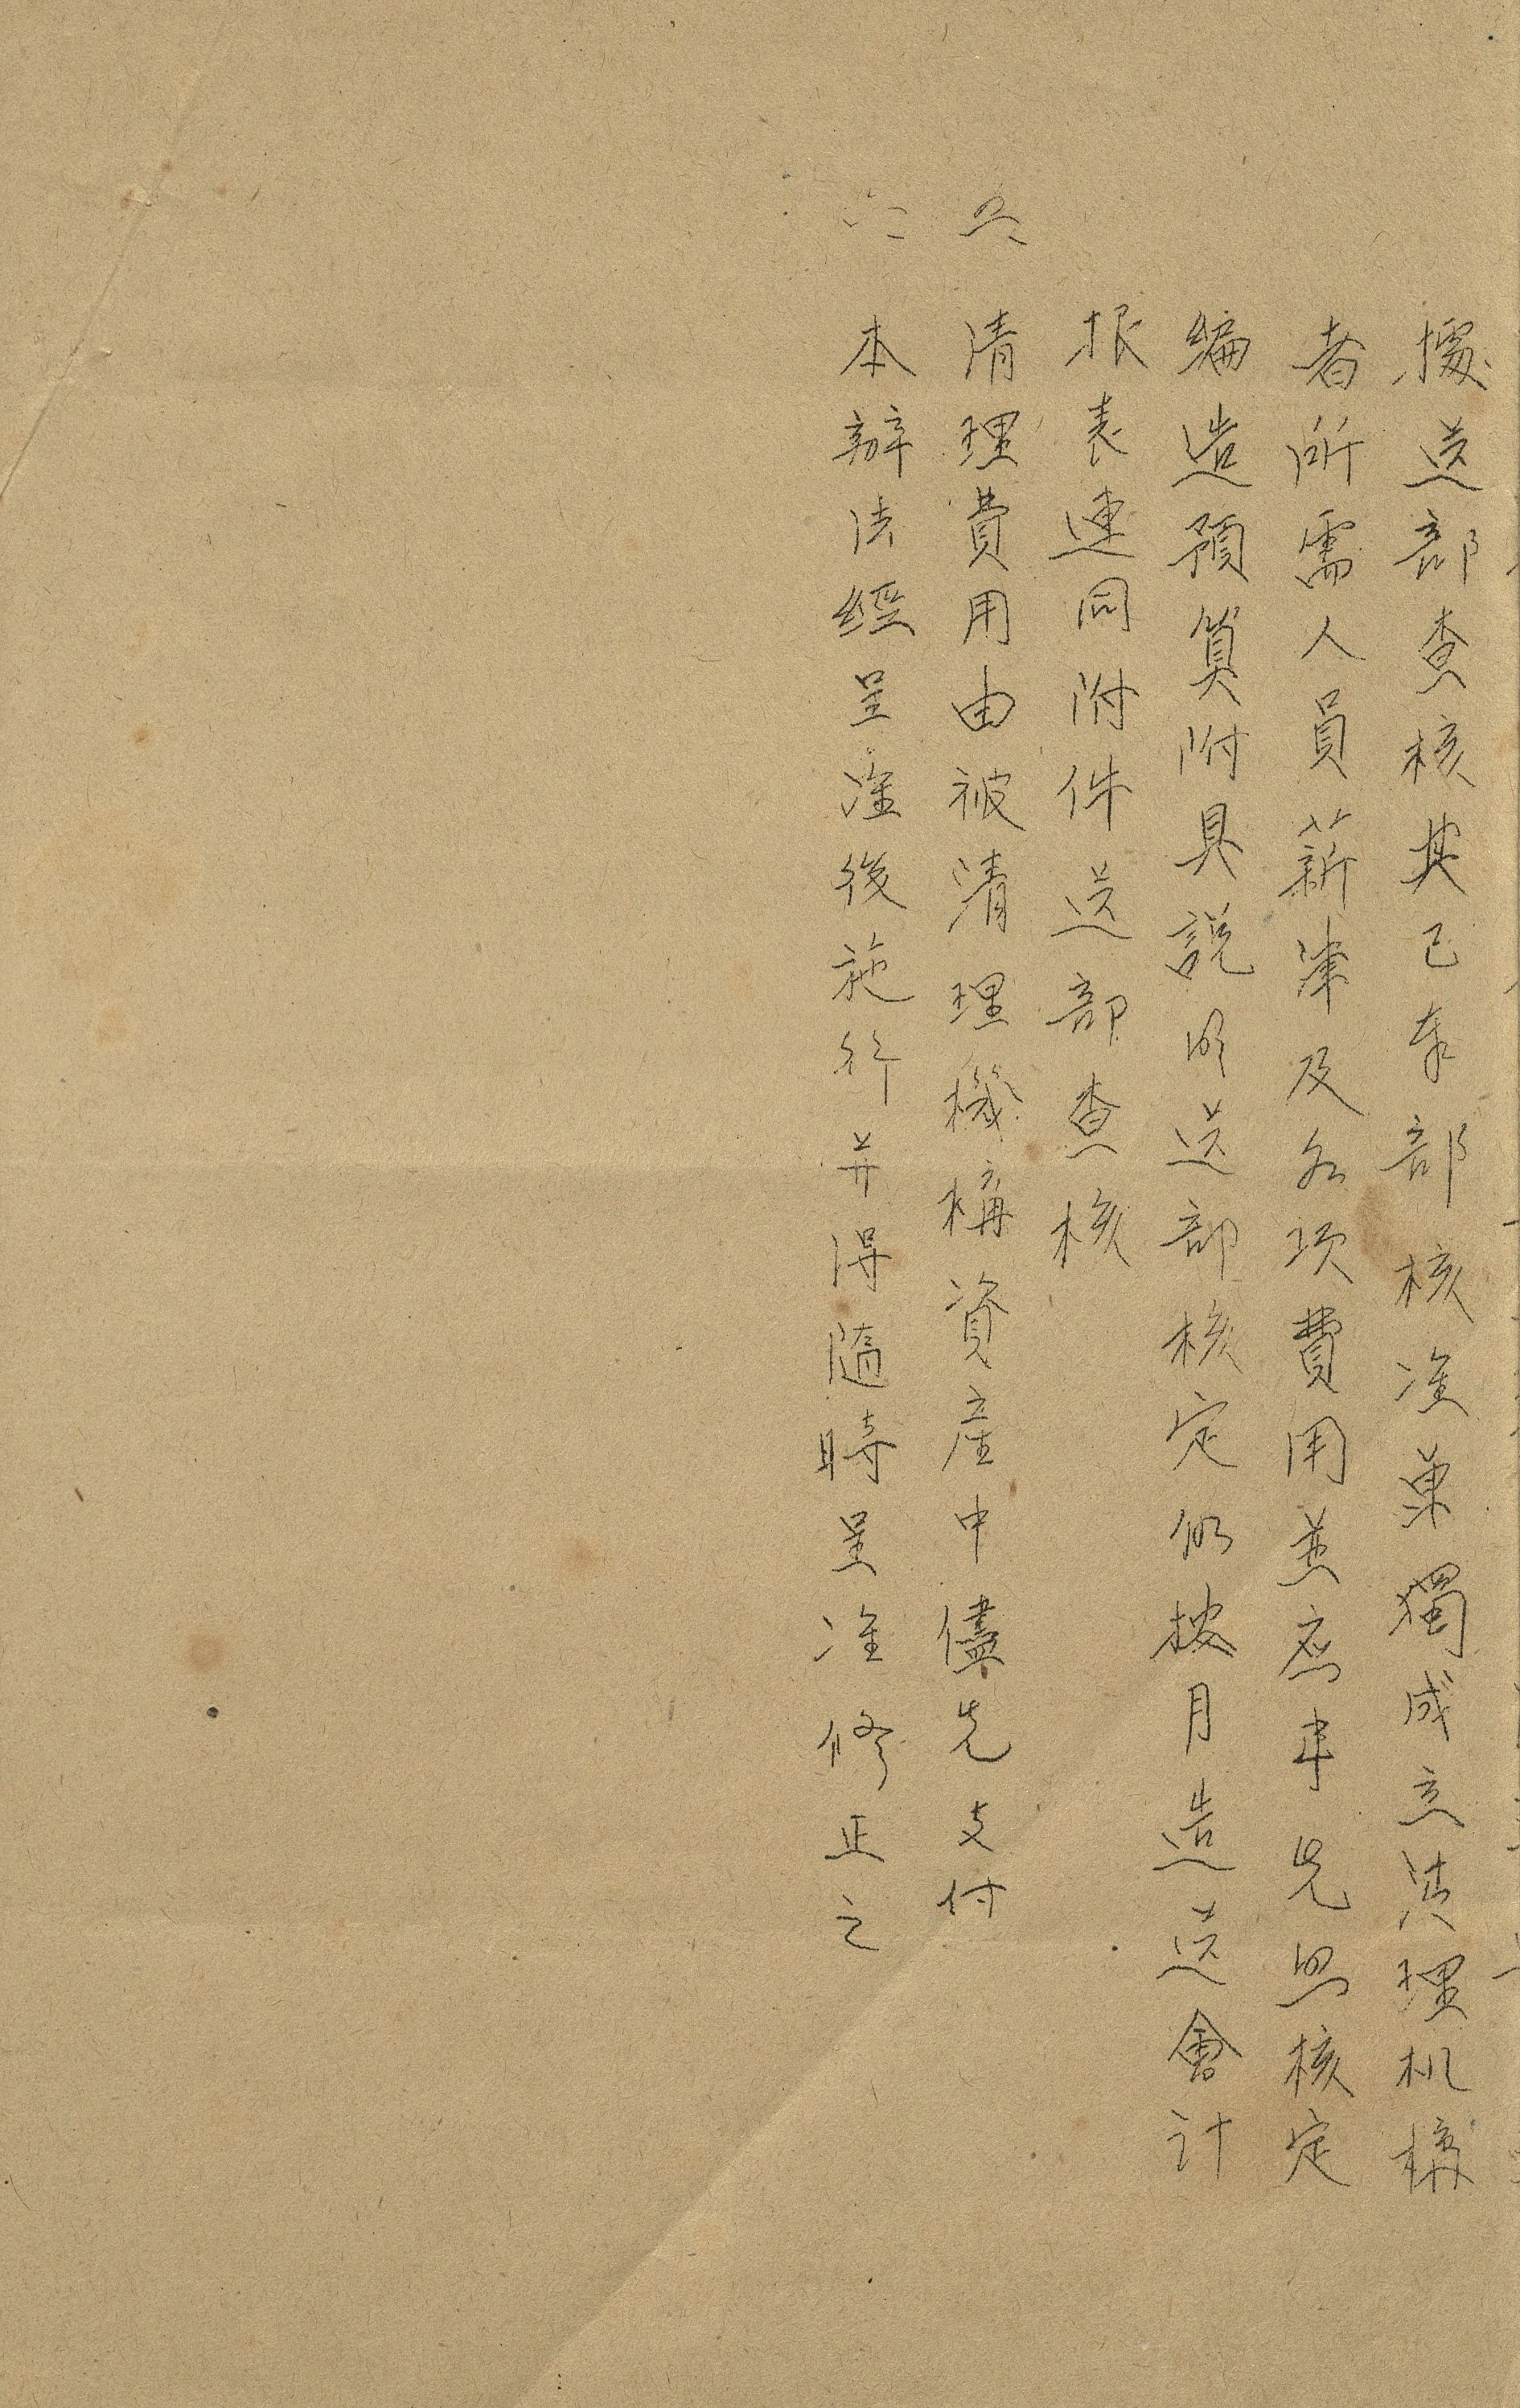 據送部查核其已奉部核准單獨成立清理机構
者所需人員薪津及各項費用並應事先照核定
編造預算附具說明送部核定仍按月造送會計
报表連同附件送部查核
五 清理費用由被清理機構資產中儘先支付
六 本辦法經呈准後施行並得隨時呈准修正之